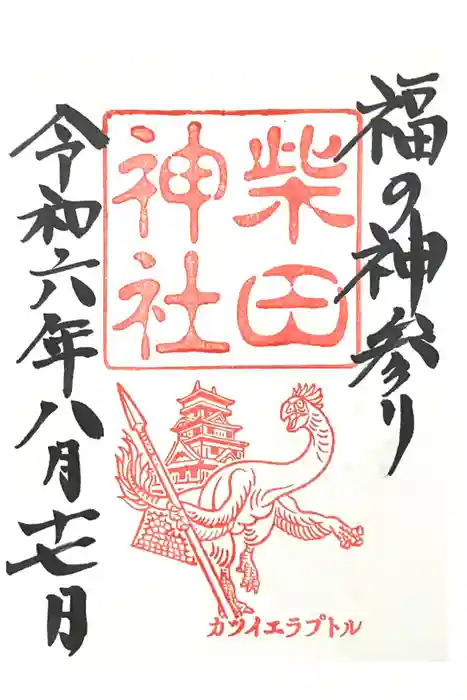 福の神参り
柴田
神社
令和六年八月十七日
カツイエラプトル